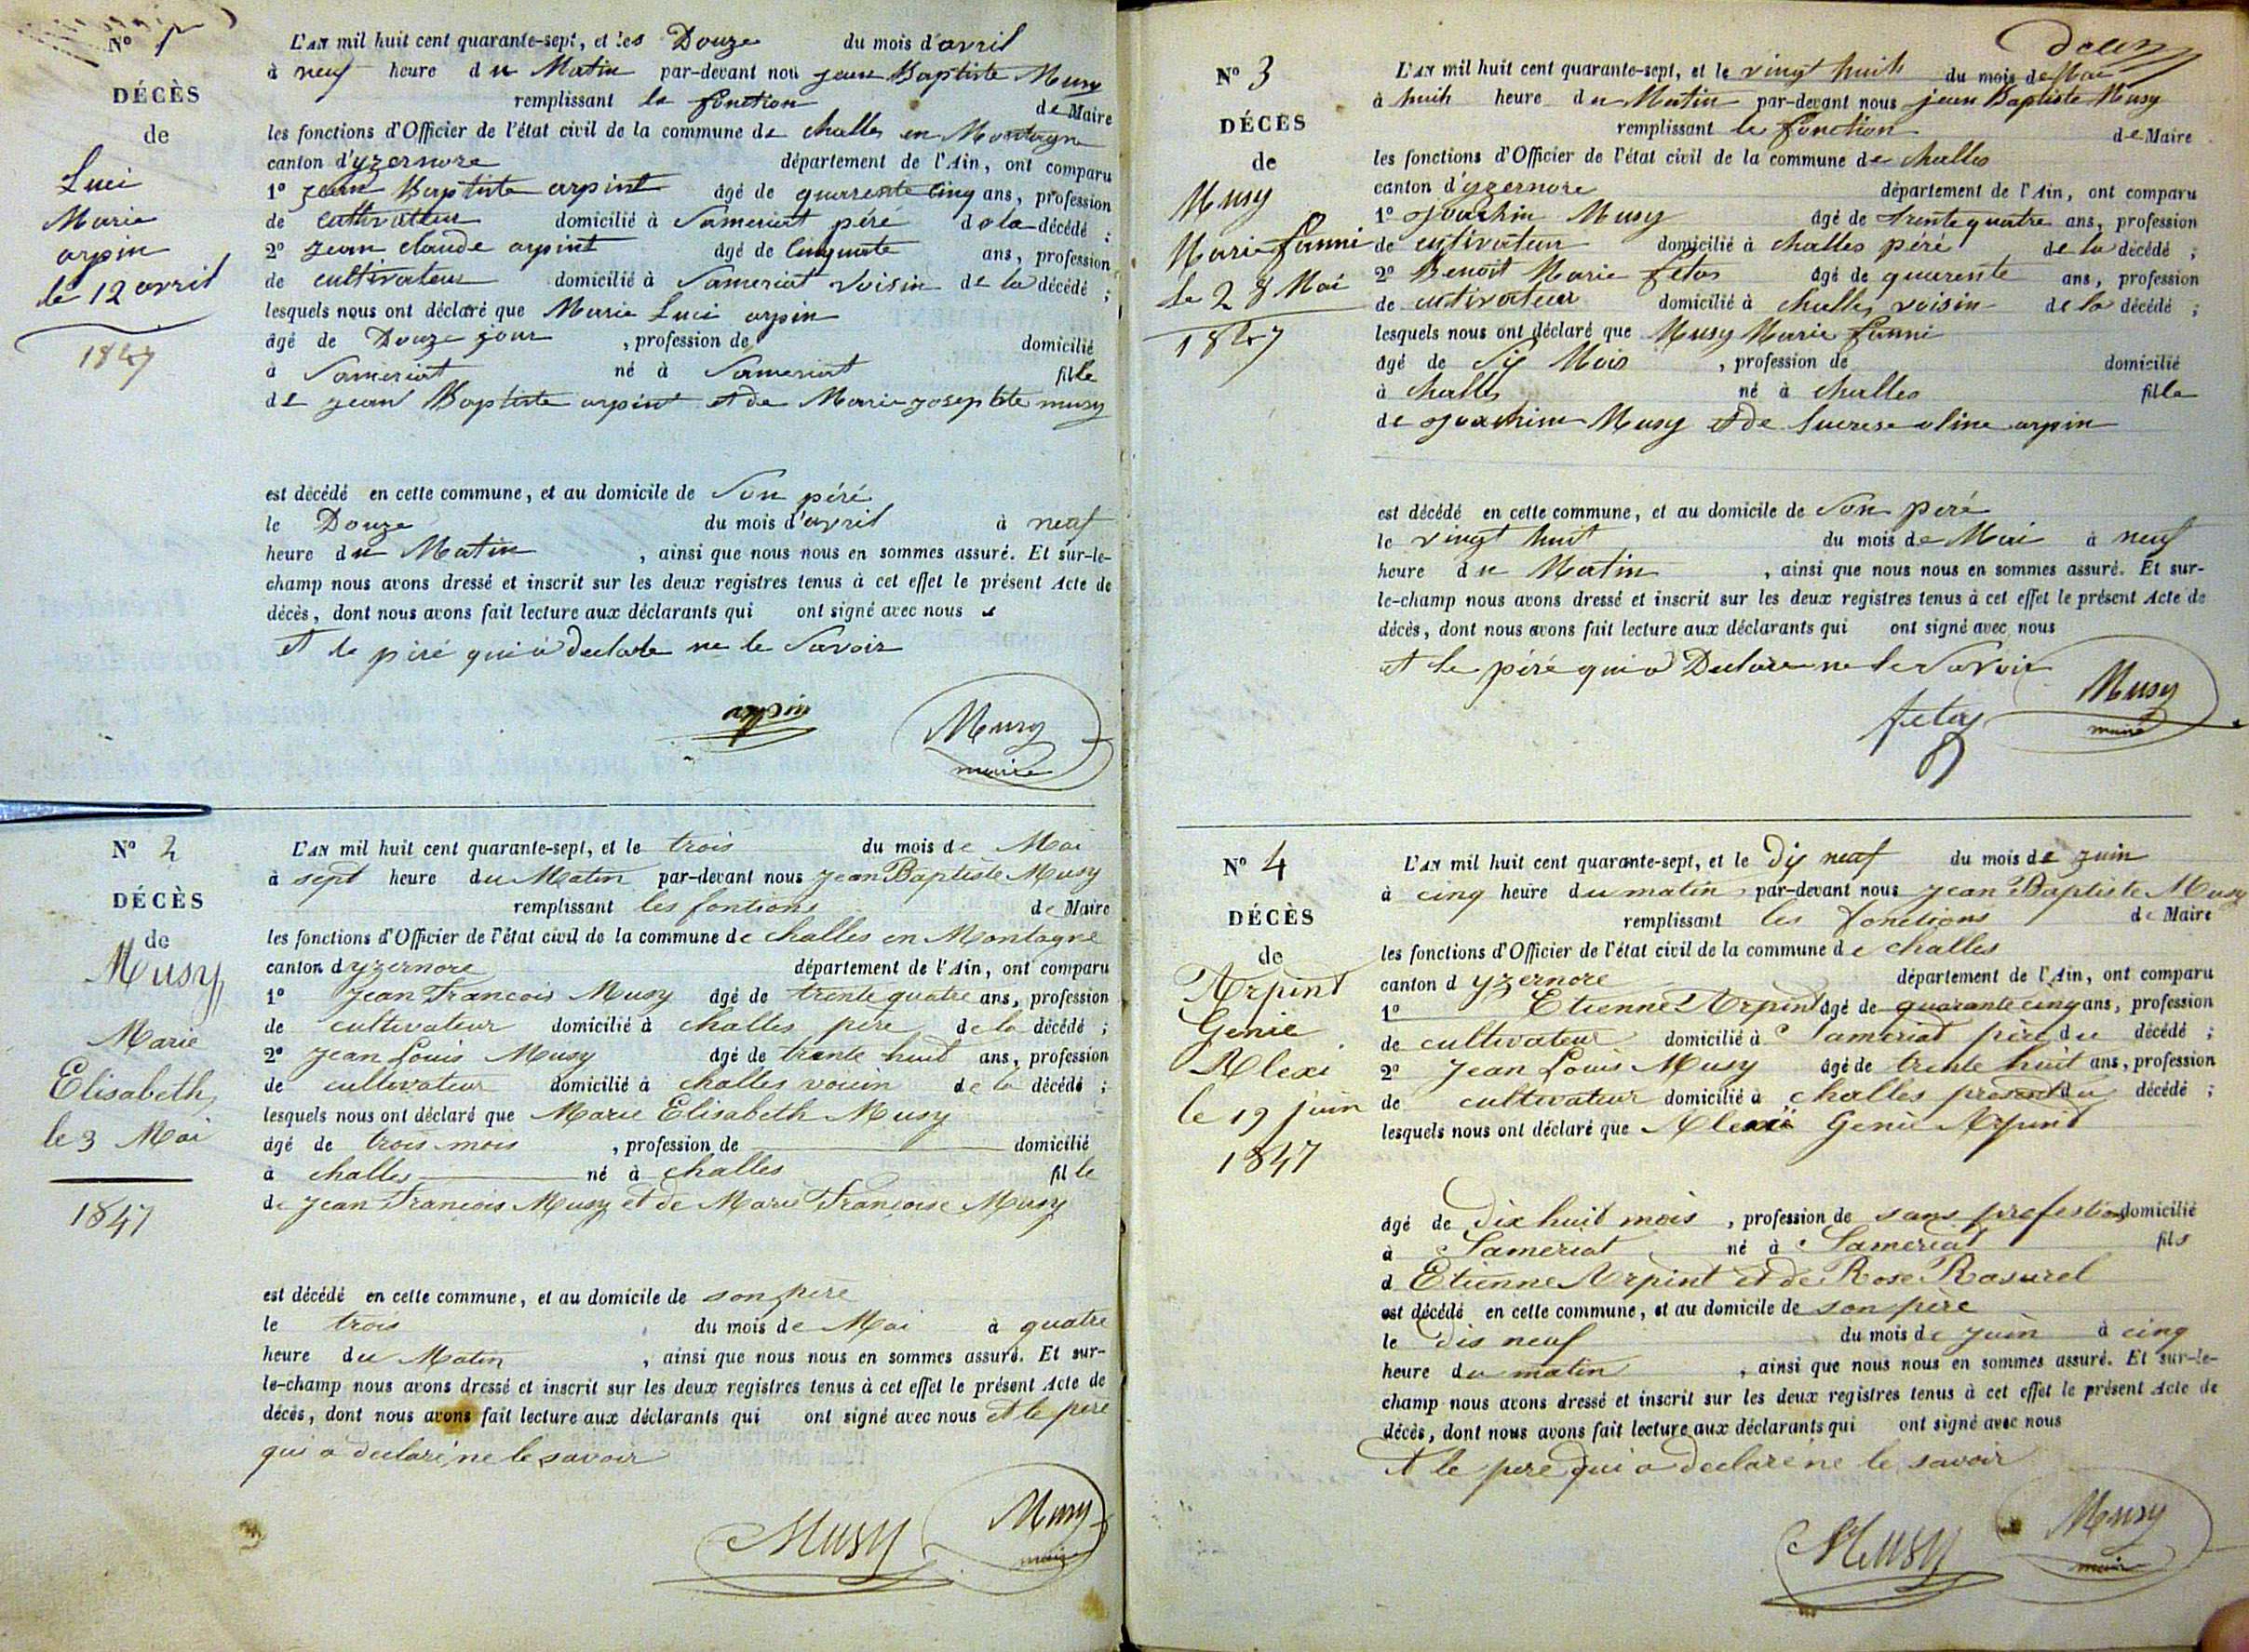 N° 1
DÉCÈS
de
Luci
Marie
arpin
le 12 avril
1847
L'AN mil huit cent quarante-sept, et les Douze du mois d'avril
à neuf heure du Matin par-devant nou jean Baptiste Musy
remplissant la fonction de Maire
les fonctions d'Officier de l'état civil de la commune de challes en Montagne
canton d'yzernore département de l'Ain, ont comparu
1° jean Baptiste arpint âgé de quarente cinq ans, profession
de cultivateur domicilié à Sameriat péré de la décédé ;
2° jean claude arpint âgé de Cinquante ans, profession
de cultivateur domicilié à Sameriat voisin de la décédé ;
lesquels nous ont déclaré que Marie Luci arpin
âgé de Douze jour , profession de domicilié
à Sameriat né à Sameriat fille
de jean Baptiste arpint et de Marie josephte musy
est décédé en cette commune, et au domicile de Son péré
le Douze du mois d'avril à neuf
heure du Matin , ainsi que nous nous en sommes assuré. Et sur-le-
champ nous avons dressé et inscrit sur les deux registres tenus à cet effet le présent Acte de
décès, dont nous avons fait lecture aux déclarants qui ont signé avec nous
et le péré qui à declare ne le Savoir
arpin
Musy
maire
N° 2
DÉCÈS
de
Musy
Marie
Elisabeth
le 3 Mai
1847
L'AN mil huit cent quarante-sept, et le trois du mois de Mai
à sept heure du Matin par-devant nous jean Baptiste Musy
remplissant les fontions de Maire
les fonctions d'Officier de l'état civil de la commune de challes en Montagne
canton dyzernore département de l'Ain, ont comparu
1° Jean Francois Musy âgé de trente quatre ans, profession
de cultivateur domicilié à challes père de la décédé ;
2° Jean Louis Musy âgé de trente huit ans, profession
de cultivateur domicilié à challes voisin de la décédé ;
lesquels nous ont déclaré que Marie Elisabeth Musy
âgé de trois mois , profession de domicilié
à challes né à challes fille
de Jean Francois Musy et de Marie Francoise Musy
est décédé en cette commune, et au domicile de son père
le trois du mois de Mai à quatre
heure du Matin , ainsi que nous nous en sommes assuré. Et sur-
le-champ nous avons dressé et inscrit sur les deux registres tenus à cet effet le présent Acte de
décès, dont nous avons fait lecture aux déclarants qui ont signé avec nous et le père
qui a declaré ne le savoir
Musy
Musy
maire
N° 3
DÉCÈS
de
Musy
Marie fanni
le 28 Mai
1847
L'AN mil huit cent quarante-sept, et le vingt huit du mois de Mai
à huit heure du Matin par-devant nous jean Baptiste Musy
remplissant la fonction de Maire
les fonctions d'Officier de l'état civil de la commune de challes
canton d'yzernore département de l'Ain, ont comparu
1° joachim Musy âgé de trente quatre ans, profession
de cultivateur domicilié à challes péré de la décédé ;
2° Benoit Marie fetas âgé de quarente ans, profession
de cultivateur domicilié à challes voisin de la décédé ;
lesquels nous ont déclaré que Musy Marie fanni
âgé de Six Mois , profession de domicilié
à challes né à challes fille
de joachim Musy et de arpin
est décédé en cette commune, et au domicile de Son péré
le vingt huit du mois de Mai à neuf
heure du Matin , ainsi que nous nous en sommes assuré. Et sur-
le-champ nous avons dressé et inscrit sur les deux registres tenus à cet effet le présent Acte de
décès, dont nous avons fait lecture aux déclarants qui ont signé avec nous
et le péré qui à Declare ne le Savoir
fetas
Musy
maire
N° 4
DÉCÈS
de
Arpint
Genie
Alexi
le 19 juin
1847
L'AN mil huit cent quarante-sept, et le Dix neuf du mois de juin
à cinq heure du matin par-devant nous jean Baptiste Musy
remplissant les fonctions de Maire
les fonctions d'Officier de l'état civil de la commune de challes
canton d yzernore département de l'Ain, ont comparu
1° Etienne Arpint âgé de quarante cinq ans, profession
de cultivateur domicilié à Sameriat père du décédé ;
2° Jean Louis Musy âgé de trente huit ans, profession
de cultivateur domicilié à challes du décédé ;
lesquels nous ont déclaré que Alexi Genie Arpint
âgé de dix huit mois , profession de sans profestion domicilié
à Sameriat né à Sameriat fils
d Etienne Arpint et de Rose Rasurel
est décédé en cette commune, et au domicile de son père
le dis neuf du mois de juin à cinq
heure du matin , ainsi que nous nous en sommes assuré. Et sur-le-
champ nous avons dressé et inscrit sur les deux registres tenus à cet effet le présent Acte de
décès, dont nous avons fait lecture aux déclarants qui ont signé avec nous
et le père qui a declaré ne le savoir
Musy
Musy
maire